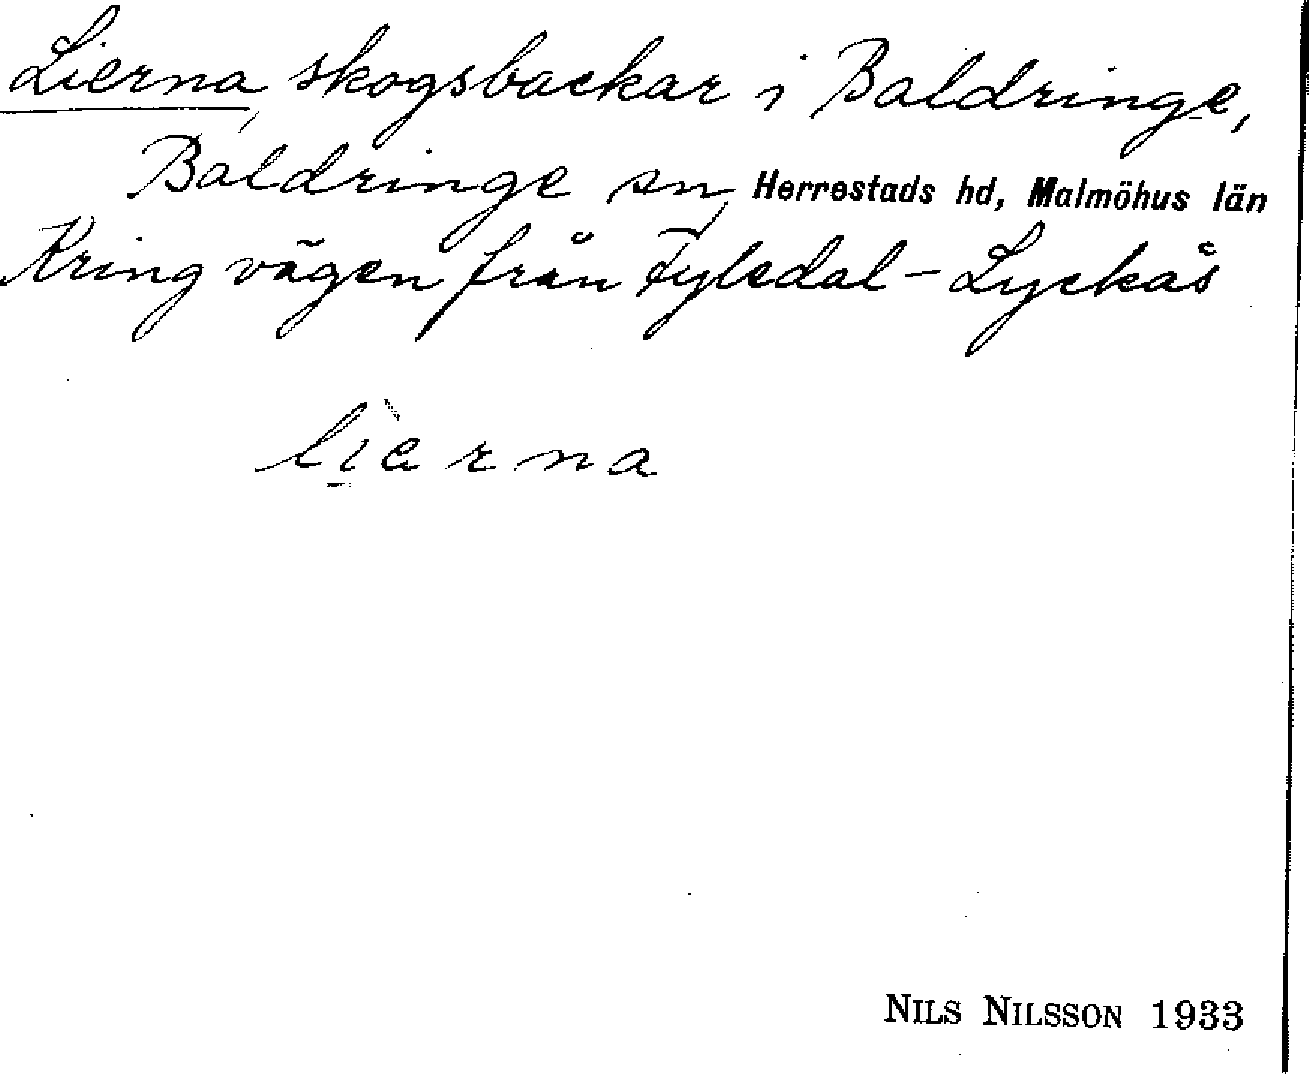 Lierna, skogsbackar i Baldringe,
Baldringe sn, Herrestads hd, Malmöhus län
Kring vägen från Fyledal - Lyckås
lì̱erna
NILS NILSSON 1933